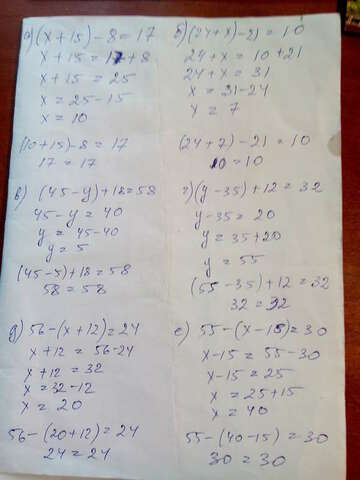 а) (x + 15) - 8 = 17
x + 15 = 17 + 8
x + 15 = 25
x = 25 - 15
x = 10
(10 + 15) - 8 = 17
17 = 17
б) (24 + x) - 21 = 10
24 + x = 10 + 21
24 + x = 31
x = 31 - 24
x = 7
(24 + 7) - 21 = 10
10 = 10
в) (45 - y) + 18 = 58
45 - y = 40
y = 45 - 40
y = 5
(45 - 5) + 18 = 58
58 = 58
г) (y - 35) + 12 = 32
y - 35 = 20
y = 35 + 20
y = 55
(55 - 35) + 12 = 32
32 = 32
д) 56 - (x + 12) = 24
x + 12 = 56 - 24
x + 12 = 32
x = 32 - 12
x = 20
56 - (20 + 12) = 24
24 = 24
е) 55 - (x - 15) = 30
x - 15 = 55 - 30
x - 15 = 25
x = 25 + 15
x = 40
55 - (40 - 15) = 30
30 = 30